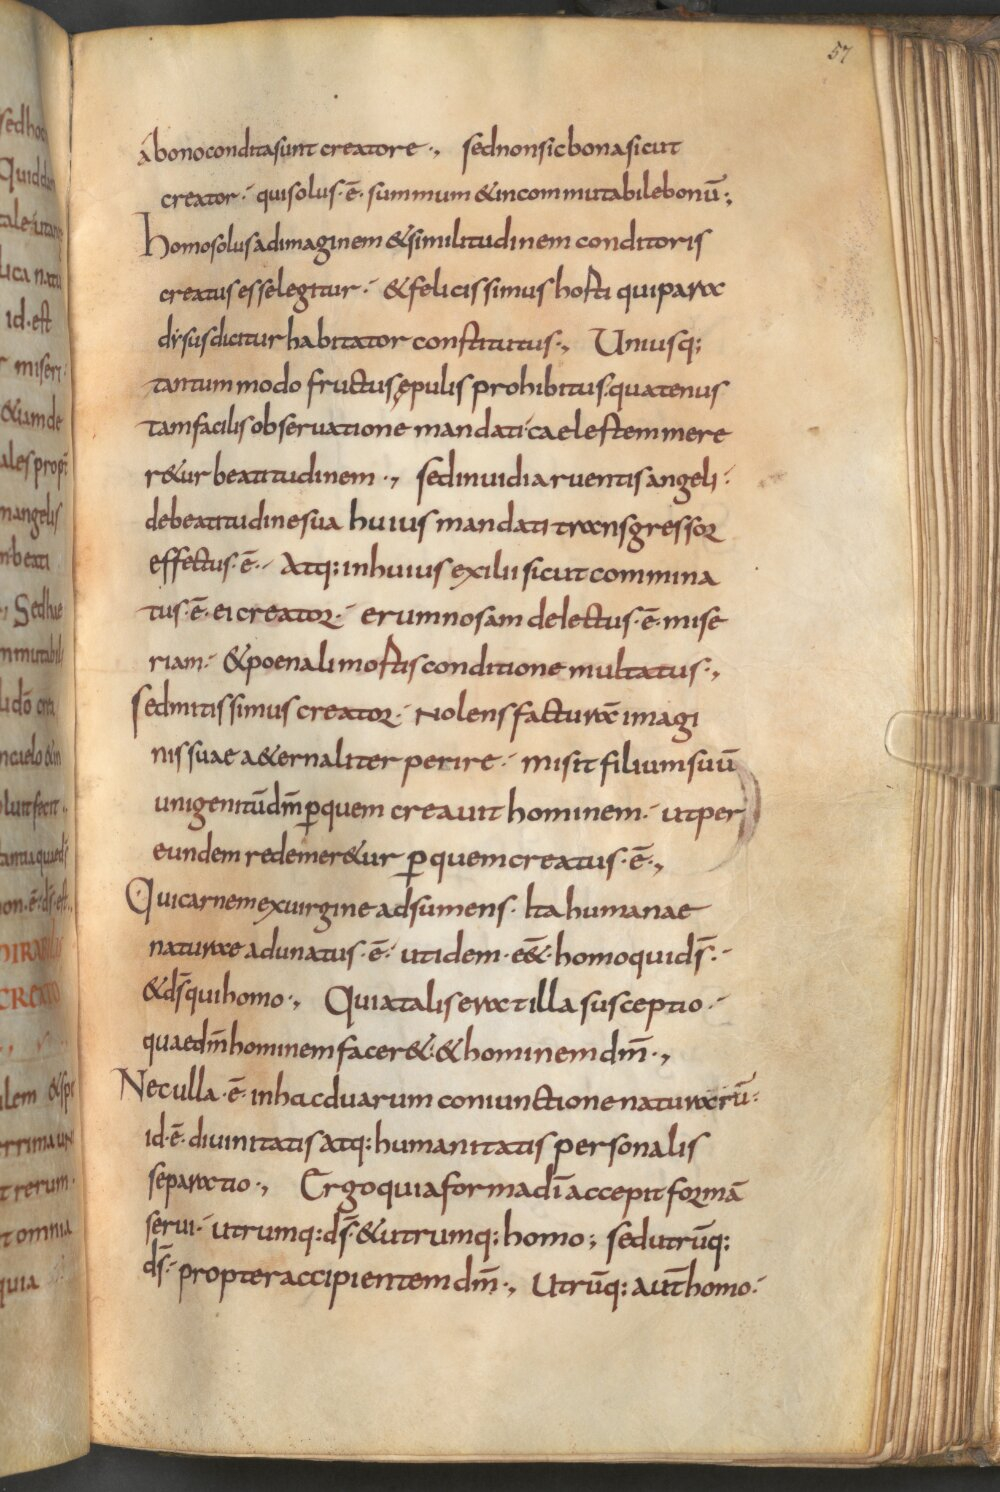 57
a bono condita sunt creatore ., sed non sic bona sicut
creator · qui solus · ē · summum & incommutabile bonū :,
homo solus ad imaginem & similitudinem conditoris
creatus esse legitur · & felicissimus hosti qui parax
dysus dicitur habitator constitutus ., Uniusq;
tantummodo fructus ępulis prohibitus. quatenus
tam facilis observatione mandati caelestem mere
r&ur beatitudinem ., sed invidia ruentis angeli ·
de beatitudine sua huius mandati transgressor
effectus · ē · Atq: in huius exilii sicut commina
tus · ē · ei creator · erumnosam delectus · ē · mise
riam · & poenali mostis conditione multatus ·,
sed mitissimus creator · Nolens facturae imagi
nis suae a&ernaliter perire · misit filium suū
unigenitū dm̄ p quem creavit hominem · ut per
eundem redemer&ur p quem creatus · ē ·,
Qui carnem ex virgine adsumens · Ita humanae
naturae adunatus · ē · ut idem · e&̄ · homo qui ds̄ ·
& ds̄ qui homo ·, Quia talis erat illa susceptio ·
quae dm̄ hominem facer& · & hominem dm̄ ·,
Nec ulla · ē · in hac duarum coniunctione naturarū ·
id · ē · divinitatis atq: humanitatis personalis
separatio ·, Ergo quia forma dī accepit formā
servi · utrumq: ds̄ · & utrumq: homo ; sed utrūq:
ds̄ · propter accipientem dm̄ ·, Utrūq: aut̄ homo ·